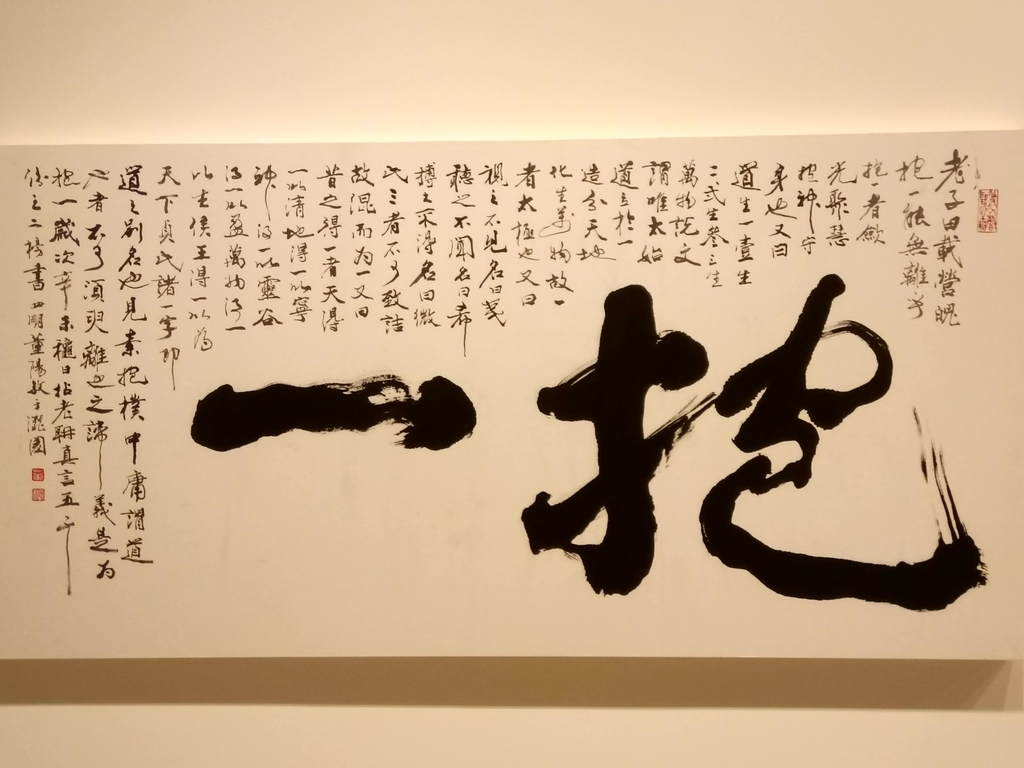 老子曰載營魄
抱一能無離乎
抱一者歛
光聚慧
抱神守
身也又曰
道生一壹生
二弍生叄三生
萬物說文
謂唯太始
道立於一
造分天地
化生萬物故一
者太極也又曰
視之不見名曰夷
聽之不聞名曰希
搏之不得名曰微
此三者不可致詰
故混而为一又曰
昔之得一者天得
一以清地得一以寧
神得一以靈谷
得一以盈萬物得一
以生侯王得一以為
天下貞此諸一字即
抱一
道之別名也見素抱樸中庸謂道
也者不可須臾離也之諦義是为
抱一歲次辛未穐日拈老耼真言五千
之二榜書 四明董陽孜于園